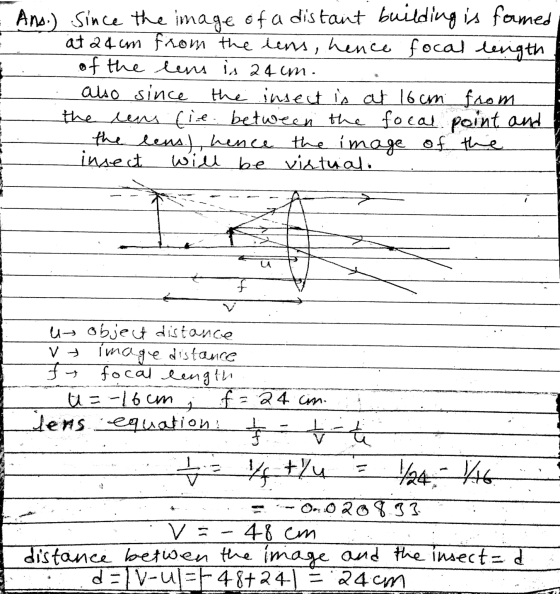 Ans.) Since the image of a distant building is formed
at 24 cm from the lens, hence focal length
of the lens is 24 cm.
also since the insect is at 16cm from
the lens (i.e. between the focal point and
the lens), hence the image of the
insect will be virtual.
u
f
v
u → object distance
v → image distance
f → focal length
u = -16 cm , f = 24 cm.
lens equation: 1/f = 1/v - 1/u
1/v = 1/f + 1/u = 1/24 - 1/16
= - 0.020833
V = - 48 cm
distance between the image and the insect = d
d = |V-u| = |-48+24| = 24 cm